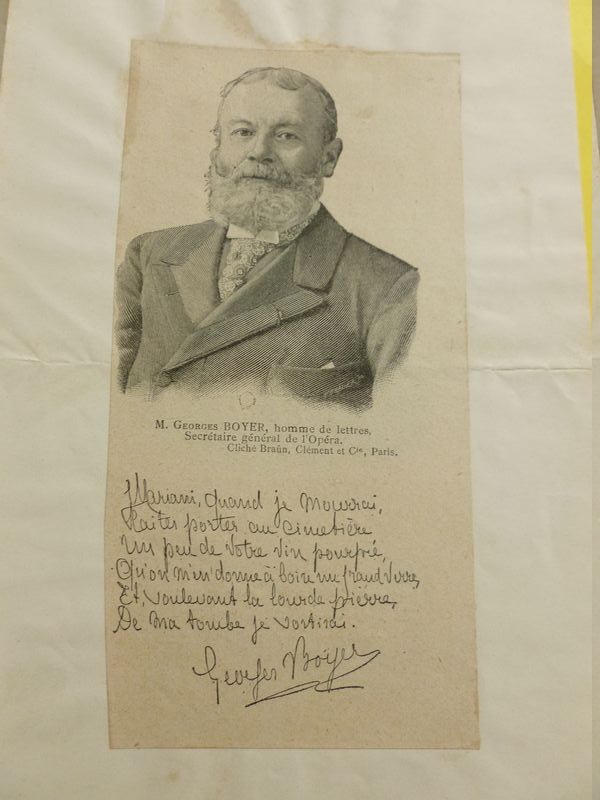 M. GEORGES BOYER, homme de lettres,
Secrétaire général de l'Opéra.
Cliché Braün, Clément et Cie, Paris.
Mariani, quand je mourrai,
Faites porter au cimetière
Un peu de votre vin pourpré,
Qu'on m'en donne à boire un grand verre,
Et, soulevant la lourde pierre,
De ma tombe je sortirai.
Georges Boyer